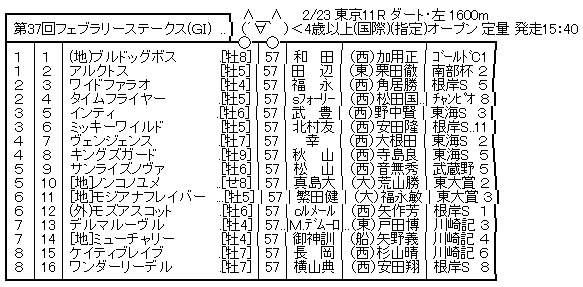 第37回フェブラリーステークス(GI) ‥ ∧＿∧ 2/23 東京11R ダート・左 1600m
( ´∀｀)＜4歳以上(国際)(指定)オープン 定量 発走15:40
1│ 1│(地)ブルドッグボス ‥[牡8]│57│ 和 田 │(西)加用正│ｺﾞｰﾙﾄﾞC1
1│ 2│アルクトス ‥[牡5]│57│ 田 辺 │(東)栗田徹│南部杯 2
2│ 3│ワイドファラオ ‥[牡4]│57│ 福 永 │(西)角居勝│根岸S 5
2│ 4│タイムフライヤー ‥[牡5]│57│sﾌｫｰﾘｰ│(西)松田国‥│ﾁｬﾝﾋﾟｵ 8
3│ 5│インティ ‥[牡6]│57│ 武 豊 │(西)野中賢│東海S 3
3│ 6│ミッキーワイルド ‥[牡5]│57│北村友│(西)安田隆│根岸S‥11
4│ 7│ヴェンジェンス ‥[牡7]│57│ 幸 │(西)大根田│東海S 2
4│ 8│キングズガード ‥[牡9]│57│ 秋 山 │(西)寺島良│東海S 5
5│ 9│サンライズノヴァ ‥[牡6]│57│ 松 山 │(西)音無秀│武蔵野 5
5│10│[地]ノンコノユメ ‥[せ8]│57│真島大│(大)荒山勝│東大賞 2
6│11│[地]モジアナフレイバー ‥[牡5]│57│繁田健│(大)福永敏│東大賞 3
6│12│(外)モズアスコット ‥[牡6]│57│cﾙﾒｰﾙ│(西)矢作芳│根岸S 1
7│13│デルマルーヴル ‥[牡4]│57│M.ﾃﾞﾑｰﾛ│(東)戸田博│川崎記 3
7│14│[地]ミューチャリー ‥[牡4]│57│御神訓│(船)矢野義│川崎記 4
8│15│ケイティブレイブ ‥[牡7]│57│ 長 岡 │(西)杉山晴│川崎記 6
8│16│ワンダーリーデル ‥[牡7]│57│横山典│(西)安田翔│根岸S 8